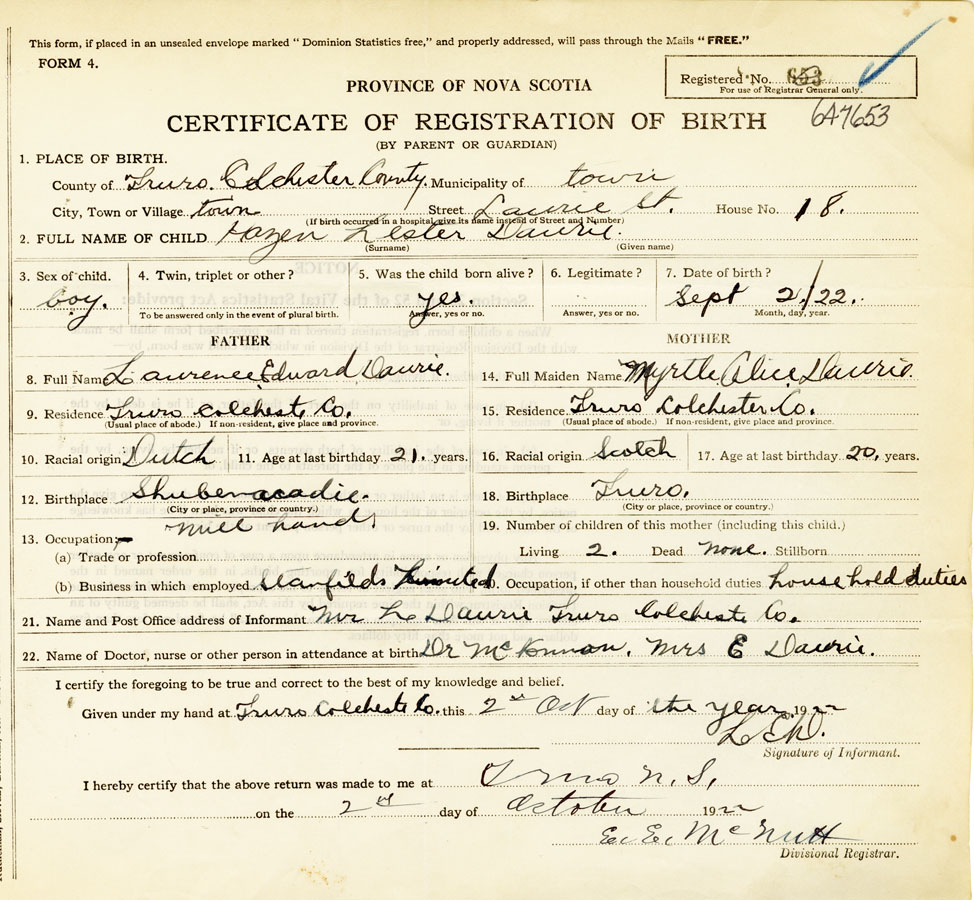 This form, if placed in an unsealed envelope marked “ Dominion Statistics free,” and properly addressed, will pass through the Mails “FREE.”
FORM 4.
Registered No. 653
For use of Registrar General only.
PROVINCE OF NOVA SCOTIA
6A7653
CERTIFICATE OF REGISTRATION OF BIRTH
(BY PARENT OR GUARDIAN)
1. PLACE OF BIRTH.
County of Truro. Colchester County. Municipality of town
City, Town or Village town Street Laurie St. House No. 18.
(If birth occurred in a hospital, give its name instead of Street and Number)
2. FULL NAME OF CHILD Hazen Lester Daurie.
(Surname) (Given name)
3. Sex of child. 4. Twin, triplet or other? 5. Was the child born alive? 6. Legitimate? 7. Date of birth?
boy. yes. Sept 2/22.
To be answered only in the event of plural birth. Answer, yes or no. Answer, yes or no. Month, day, year.
FATHER MOTHER
8. Full Name Laurence Edward Daurie. 14. Full Maiden Name Myrtle Alice Daurie.
9. Residence Truro Colcheste Co. 15. Residence Truro Colchester Co.
(Usual place of abode.) If non-resident, give place and province. (Usual place of abode.) If non-resident, give place and province.
10. Racial origin Dutch 11. Age at last birthday 21. years. 16. Racial origin Scotch 17. Age at last birthday 20. years.
12. Birthplace Shubenacadie. 18. Birthplace Truro.
(City or place, province or country.) (City or place, province or country.)
mill hand.
13. Occupation:- 19. Number of children of this mother (including this child.)
(a) Trade or profession Living 2. Dead none. Stillborn
(b) Business in which employed Stanfields Limited 20. Occupation, if other than household duties household duties
21. Name and Post Office address of Informant Mr L Daurie Truro Colcheste Co.
22. Name of Doctor, nurse or other person in attendance at birth Dr McKinnon. Mrs E Daurie.
I certify the foregoing to be true and correct to the best of my knowledge and belief.
Given under my hand at Truro Colcheste Co. this 2nd Oct day of the year 1922
L.E.D.
Signature of Informant.
I hereby certify that the above return was made to me at Truro N.S.,
on the 2nd day of October 1922
E. E. McNutt
Divisional Registrar.